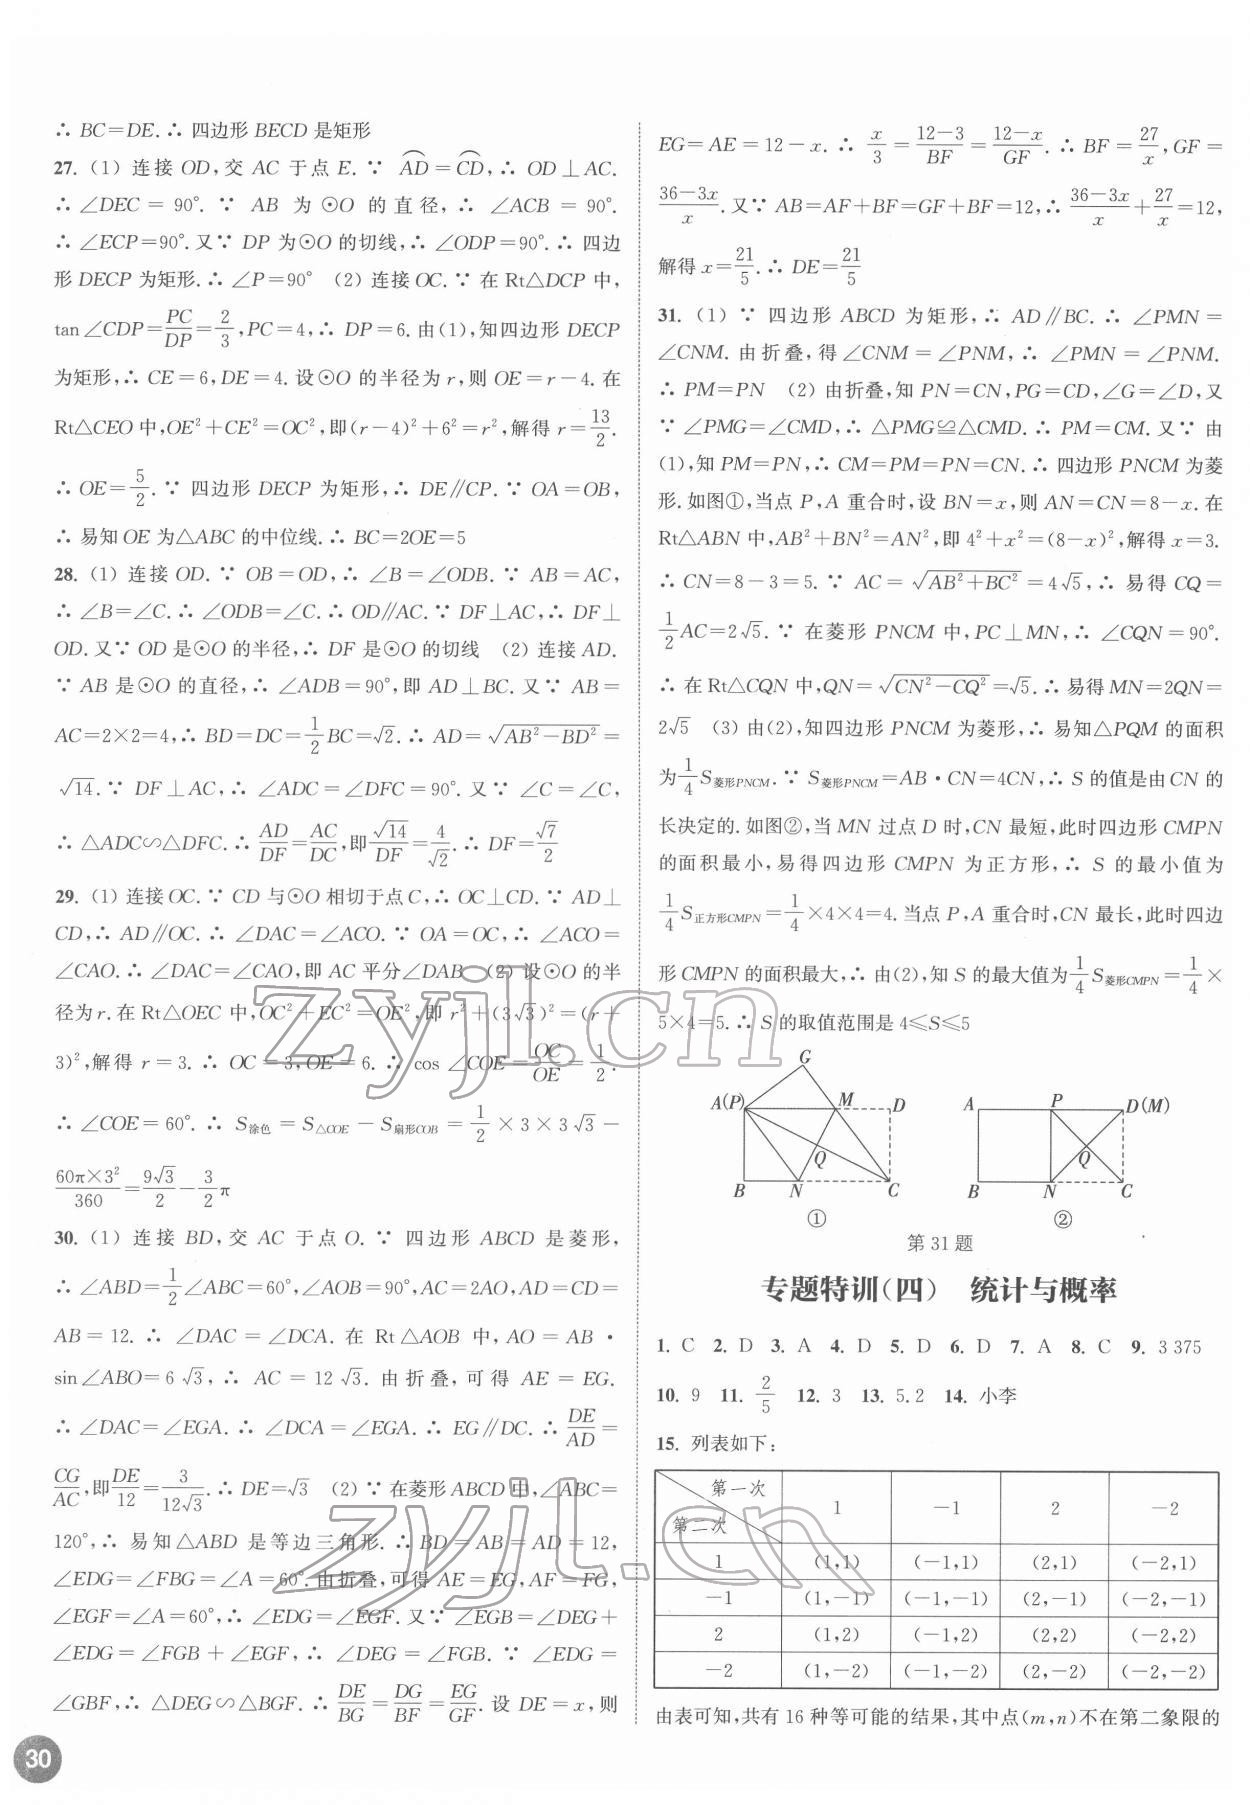 ∴ BC=DE.∴ 四边形 BECD 是矩形
27.（1）连接 OD,交 AC 于点 E.∵ AD⌒=CD⌒,∴ OD⊥AC.
∴ ∠DEC = 90°. ∵ AB 为 ⊙O 的直径,∴ ∠ACB = 90°.
∴ ∠ECP=90°.又∵ DP 为⊙O 的切线,∴ ∠ODP=90°.∴ 四边
形 DECP 为矩形.∴ ∠P=90° （2）连接 OC.∵ 在 Rt△DCP 中,
tan∠CDP=PC/DP=2/3,PC=4,∴ DP=6.由(1),知四边形 DECP
为矩形,∴ CE=6,DE=4.设⊙O 的半径为 r,则 OE=r-4.在
Rt△CEO 中,OE²+CE²=OC²,即(r-4)²+6²=r²,解得 r=13/2.
∴ OE=5/2.∵ 四边形 DECP 为矩形,∴ DE∥CP.∵ OA=OB,
∴ 易知 OE 为△ABC 的中位线.∴ BC=2OE=5
28.（1）连接 OD.∵ OB=OD,∴ ∠B=∠ODB.∵ AB=AC,
∴ ∠B=∠C.∴ ∠ODB=∠C.∴ OD∥AC.∵ DF⊥AC,∴ DF⊥
OD.又∵ OD 是⊙O 的半径,∴ DF 是⊙O 的切线 （2）连接 AD.
∵ AB 是⊙O 的直径,∴ ∠ADB=90°,即 AD⊥BC.又∵ AB=
AC=2×2=4,∴ BD=DC=1/2BC=√2.∴ AD=√(AB²-BD²)=
√14.∵ DF⊥AC,∴ ∠ADC=∠DFC=90°.又∵ ∠C=∠C,
∴ △ADC∽△DFC.∴ AD/DF=AC/DC,即√14/DF=4/√2.∴ DF=√7/2
29.（1）连接 OC.∵ CD 与⊙O 相切于点 C,∴ OC⊥CD.∵ AD⊥
CD,∴ AD∥OC.∴ ∠DAC=∠ACO.∵ OA=OC,∴ ∠ACO=
∠CAO.∴ ∠DAC=∠CAO,即 AC 平分∠DAB （2）设⊙O 的半
径为 r.在 Rt△OEC 中,OC²+EC²=OE²,即 r²+(3√3)²=(r+
3)²,解得 r=3.∴ OC=3,OE=6.∴ cos∠COE=OC/OE=1/2.
∴ ∠COE=60°.∴ S涂色=S△COE-S扇形COB=1/2×3×3√3-
60π×3²/360=9√3/2-3/2π
30.（1）连接 BD,交 AC 于点 O.∵ 四边形 ABCD 是菱形,
∴ ∠ABD=1/2∠ABC=60°,∠AOB=90°,AC=2AO,AD=CD=
AB=12.∴ ∠DAC=∠DCA.在 Rt△AOB 中,AO=AB·
sin∠ABO=6√3,∴ AC=12√3.由折叠,可得 AE=EG.
∴ ∠DAC=∠EGA.∴ ∠DCA=∠EGA.∴ EG∥DC.∴ DE/AD=
CG/AC,即DE/12=3/12√3.∴ DE=√3 （2）∵ 在菱形 ABCD 中,∠ABC=
120°,∴ 易知△ABD 是等边三角形.∴ BD=AB=AD=12,
∠EDG=∠FBG=∠A=60°.由折叠,可得 AE=EG,AF=FG,
∠EGF=∠A=60°,∴ ∠EDG=∠EGF.又∵ ∠EGB=∠DEG+
∠EDG=∠FGB+∠EGF,∴ ∠DEG=∠FGB.∵ ∠EDG=
∠GBF,∴ △DEG∽△BGF.∴ DE/BG=DG/BF=EG/GF.设 DE=x,则
30
EG=AE=12-x.∴ x/3=(12-3)/BF=(12-x)/GF.∴ BF=27/x,GF=
(36-3x)/x.又∵ AB=AF+BF=GF+BF=12,∴ (36-3x)/x+27/x=12,
解得 x=21/5.∴ DE=21/5
31.（1）∵ 四边形 ABCD 为矩形,∴ AD∥BC.∴ ∠PMN=
∠CNM.由折叠,得∠CNM=∠PNM,∴ ∠PMN=∠PNM.
∴ PM=PN （2）由折叠,知 PN=CN,PG=CD,∠G=∠D,又
∵ ∠PMG=∠CMD,∴ △PMG≌△CMD.∴ PM=CM.又∵ 由
(1),知 PM=PN,∴ CM=PM=PN=CN.∴ 四边形 PNCM 为菱
形.如图①,当点 P,A 重合时,设 BN=x,则 AN=CN=8-x.在
Rt△ABN 中,AB²+BN²=AN²,即 4²+x²=(8-x)²,解得 x=3.
∴ CN=8-3=5.∵ AC=√(AB²+BC²)=4√5,∴ 易得 CQ=
1/2AC=2√5.∵ 在菱形 PNCM 中,PC⊥MN,∴ ∠CQN=90°.
∴ 在 Rt△CQN 中,QN=√(CN²-CQ²)=√5.∴ 易得 MN=2QN=
2√5 （3）由(2),知四边形 PNCM 为菱形,∴ 易知△PQM 的面积
为1/4S菱形PNCM.∵ S菱形PNCM=AB·CN=4CN,∴ S 的值是由 CN 的
长决定的.如图②,当 MN 过点 D 时,CN 最短,此时四边形 CMPN
的面积最小,易得四边形 CMPN 为正方形,∴ S 的最小值为
1/4S正方形CMPN=1/4×4×4=4.当点 P,A 重合时,CN 最长,此时四边
形 CMPN 的面积最大,∴ 由(2),知 S 的最大值为1/4S菱形CMPN=1/4×
5×4=5.∴ S 的取值范围是 4≤S≤5
G
A(P) M D
Q
B N C
①
A P D(M)
Q
B N C
②
第 31 题
专题特训(四) 统计与概率
1. C 2. D 3. A 4. D 5. D 6. D 7. A 8. C 9. 3 375
10. 9 11. 2/5 12. 3 13. 5.2 14. 小李
15. 列表如下：
第一次 第二次 1 -1 2 -2
1 (1,1) (-1,1) (2,1) (-2,1)
-1 (1,-1) (-1,-1) (2,-1) (-2,-1)
2 (1,2) (-1,2) (2,2) (-2,2)
-2 (1,-2) (-1,-2) (2,-2) (-2,-2)
由表可知,共有 16 种等可能的结果,其中点(m,n)不在第二象限的
zyjl.cn
zyjl.cn